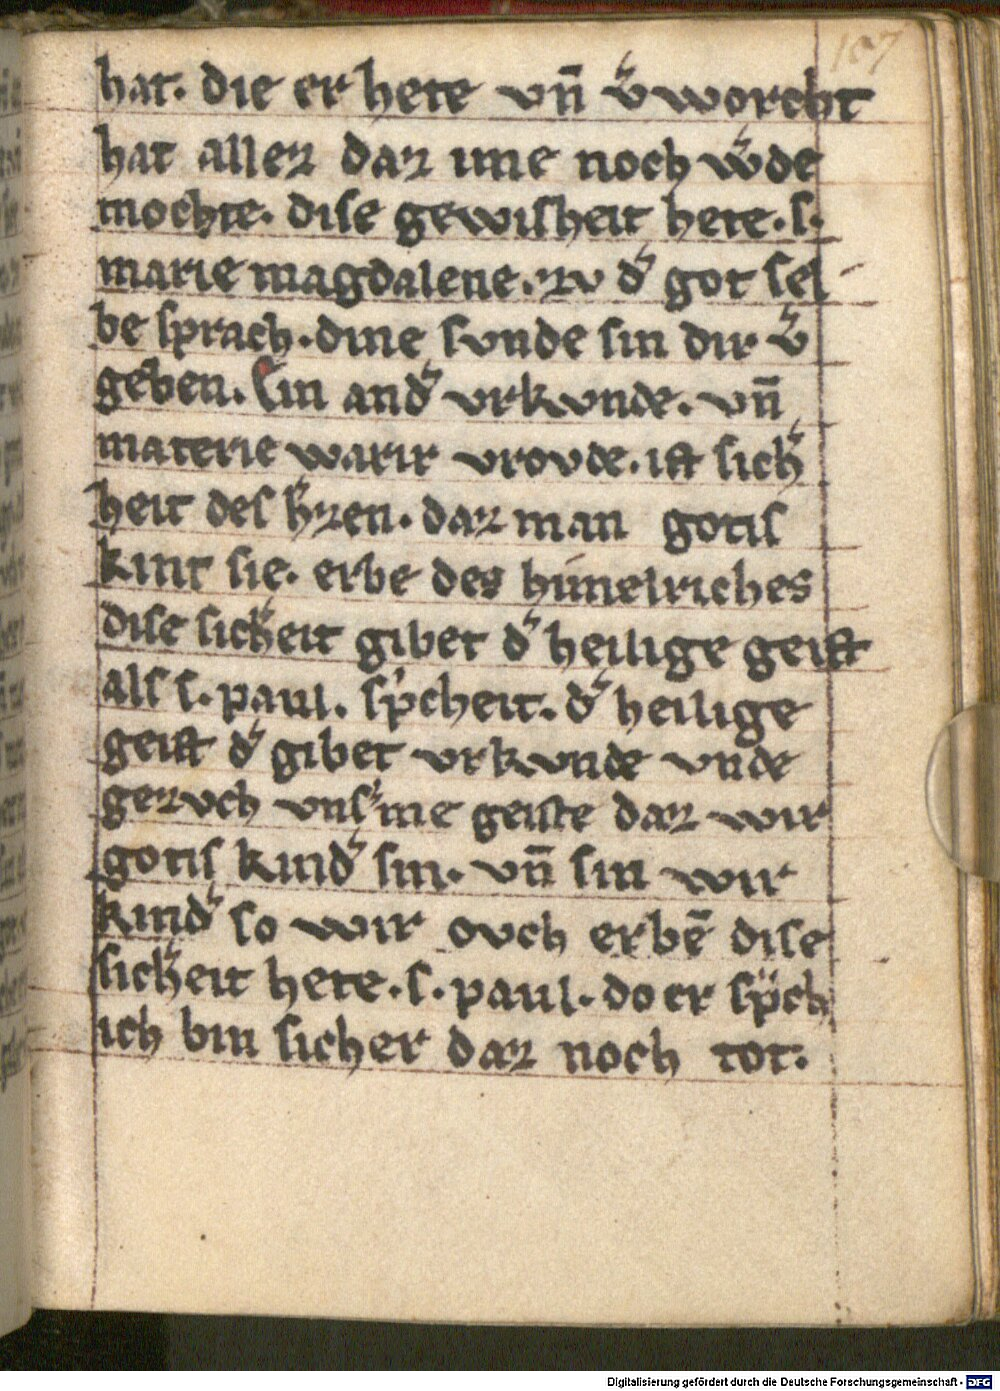 107
hat. die er hete vn̄ v͛worcht
hat allez daz ime noch w͛de
mochte. dise gewisheit hete. s.
marie magdalene. zv d͛ got sel
be sprach. dine svnde sin dir v͛
geben. Ein and͛ vrkvnde. vn̄
materie warir vrovde. ist sich͛
heit des h͛zen. daz man gotis
kint sie. erbe des himelriches
dise sich͛eit gibet d͛ heilige geist
als s. paul. sp͛cheit. d͛ heilige
geist d͛ gibet vrkvnde vnde
gezvch vns͛me geiste daz wir
gotis kind͛ sin. vn̄ sin wir
kind͛ so wir ovch erbē dise
sich͛eit hete. s. paul. do er sp̈ch
ich bin sicher daz noch tot.
Digitalisierung gefördert durch die Deutsche Forschungsgemeinschaft - DFG